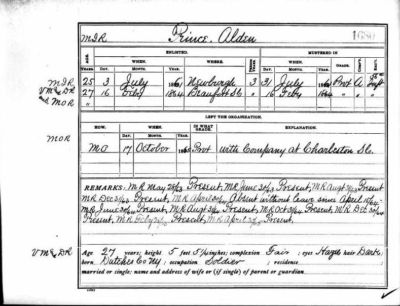 MIR Prince, Alden
AGE. ENLISTED. MUSTERED IN
YEARS. WHEN. WHERE. PERIOD YEARS. WHEN. GRADE. CO'Y. REG'T.
DAY. MONTH. YEAR. DAY. MONTH. YEAR.
MIR 25 3 July 186 Newburgh 3 31 July 186 Pvt A 56 Inft
VMR & DR 27 16 Feby 1864 Beaufort SC " 16 Feby 1864 " " "
& MOR "
LEFT THE ORGANIZATION.
HOW. WHEN. IN WHAT GRADE. EXPLANATION.
DAY. MONTH. YEAR.
MOR MO 17 October 1865 Pvt with Company at Charleston SC.
REMARKS: MR May 25/63 Present, MR June 30/63 Present, MR Aug 31/63 Present
MR Dec 31/63 Present, MR April 30/64 Absent without leave since April 15/64
MR June 30/64 Present, MR Aug 31/64 Present, MR Oct 31/64 Present, MR Dec 31/64
Present, MR Feby 28/65 Present, MR April 30/65 Present.
VMR & DR Age 27 years; height 5 feet 5 inches; complexion Fair; eyes Hazel; hair Dark;
born Dutchess Co NY; occupation Soldier; residence ;
married or single; name and address of wife or (if single) of parent or guardian